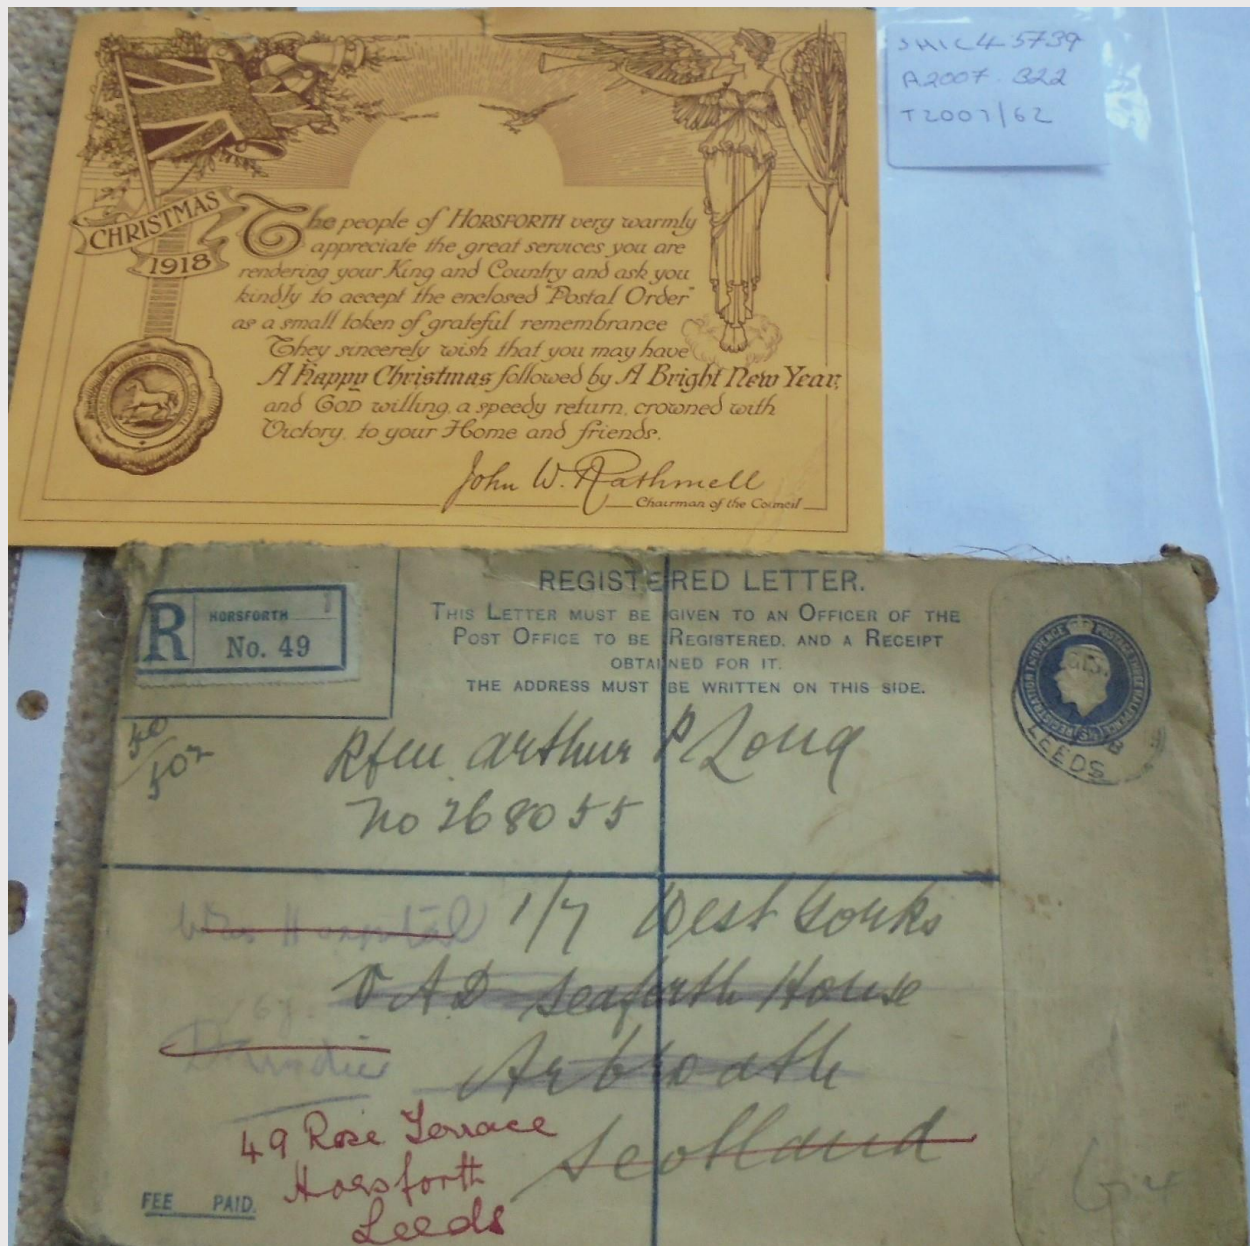 SHIC 45739
A2007.822
T2007/62
CHRISTMAS
1918
The people of HORSFORTH very warmly
appreciate the great services you are
rendering your King and Country and ask you
kindly to accept the enclosed "Postal Order"
as a small token of grateful remembrance
They sincerely wish that you may have
A Happy Christmas followed by A Bright New Year,
and GOD willing, a speedy return, crowned with
Victory, to your Home and friends.
John W. Rathmell
Chairman of the Council
REGISTERED LETTER.
THIS LETTER MUST BE GIVEN TO AN OFFICER OF THE
POST OFFICE TO BE REGISTERED, AND A RECEIPT
OBTAINED FOR IT.
THE ADDRESS MUST BE WRITTEN ON THIS SIDE.
R
HORSFORTH
No. 49
LEEDS
50/502
Rfm. Arthur P Long
No 268055
1/7 West Yorks
War Hospital
V A D Seaforth House
Arbroath
Dundee
Scotland
49 Rose Terrace
Horsforth
Leeds
FEE PAID.